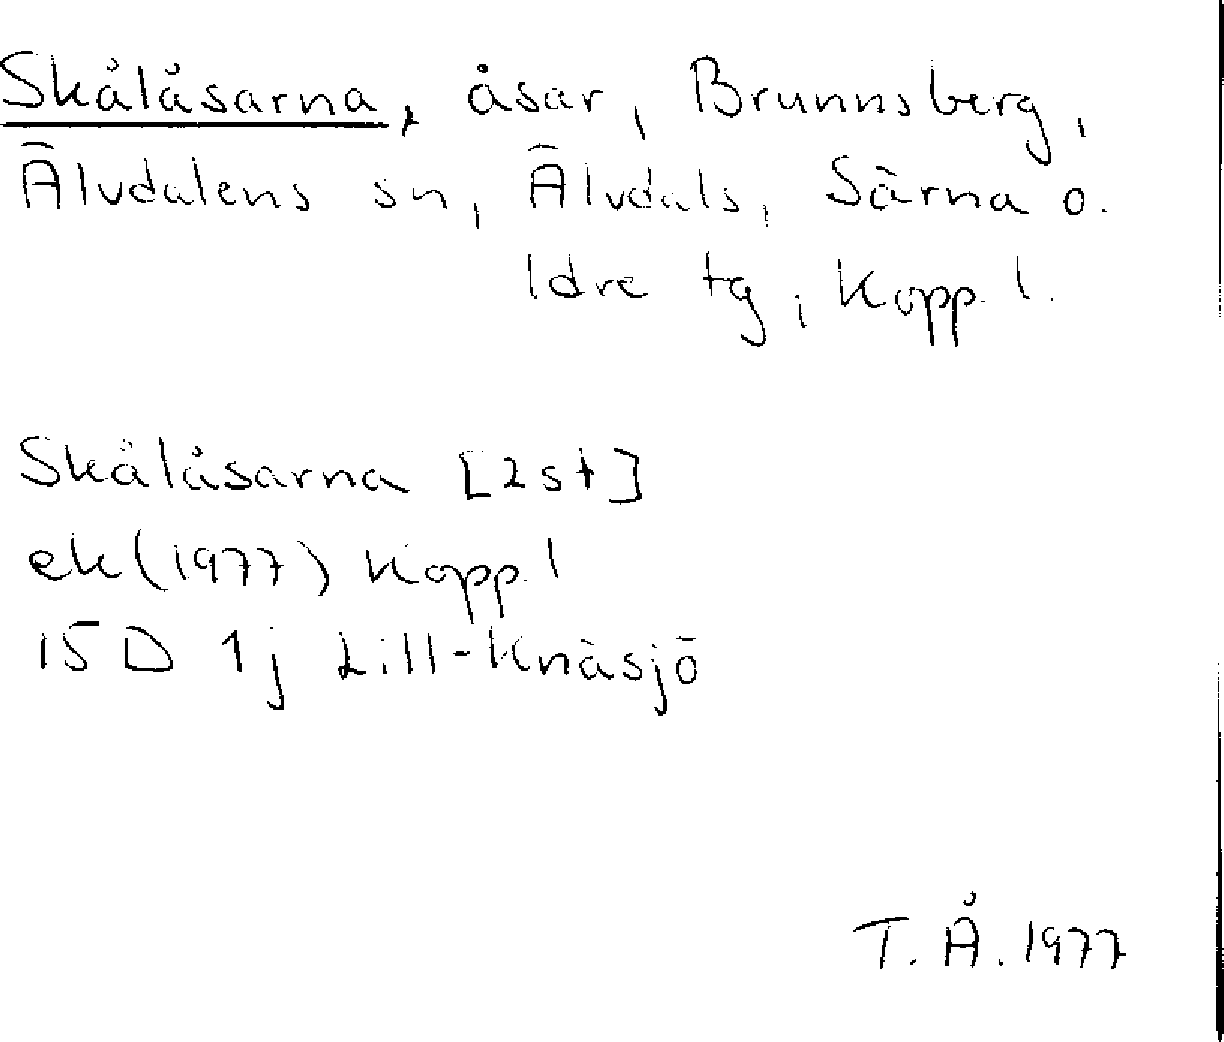 Skålåsarna, åsar, Brunnsberg,
Älvdalens sn, Älvdals, Särna o.
Idre tg, Kopp. l.
Skålåsarna [2 st]
ek (1977) Kopp. l
15 D 1j Lill-Knäsjö
T. Å. 1977